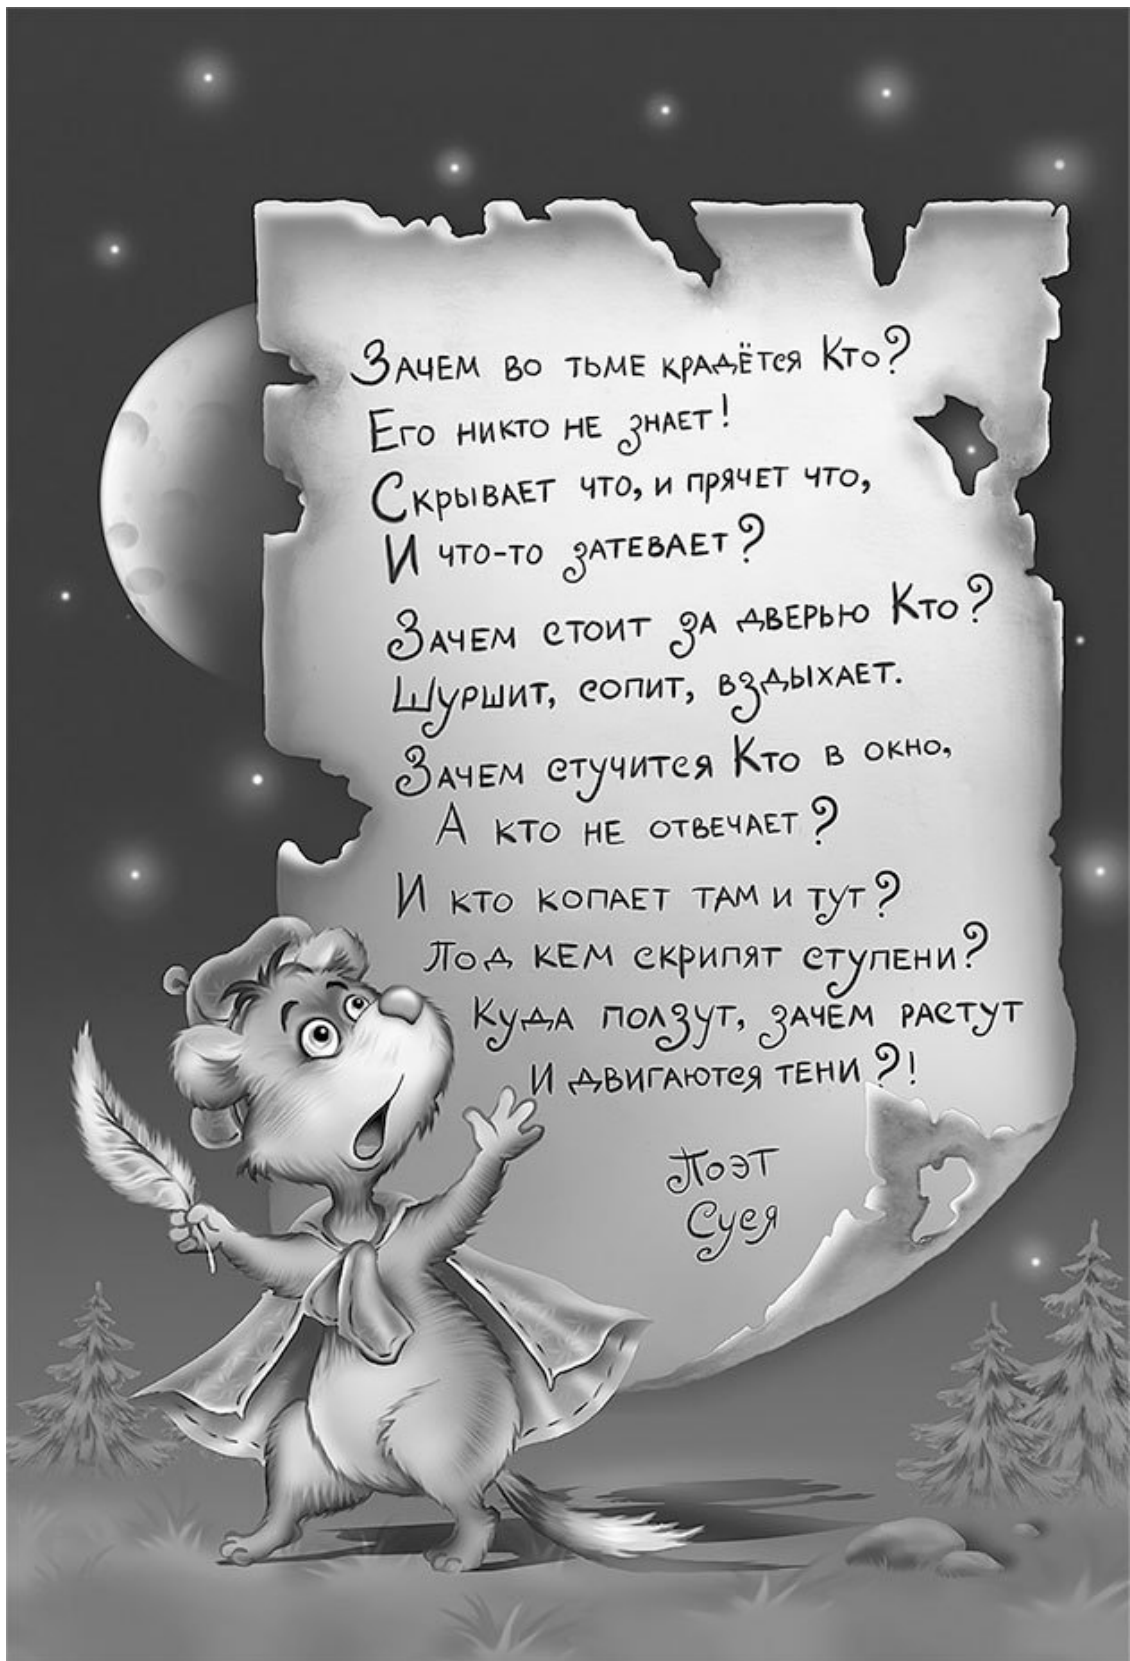 Зачем во тьме крадётся Кто?
Его никто не знает!
Скрывает что, и прячет что,
И что-то затевает?
Зачем стоит за дверью Кто?
Шуршит, сопит, вздыхает.
Зачем стучится Кто в окно,
А кто не отвечает?
И кто копает там и тут?
Под кем скрипят ступени?
Куда ползут, зачем растут
И двигаются тени?!
Поэт
Суся